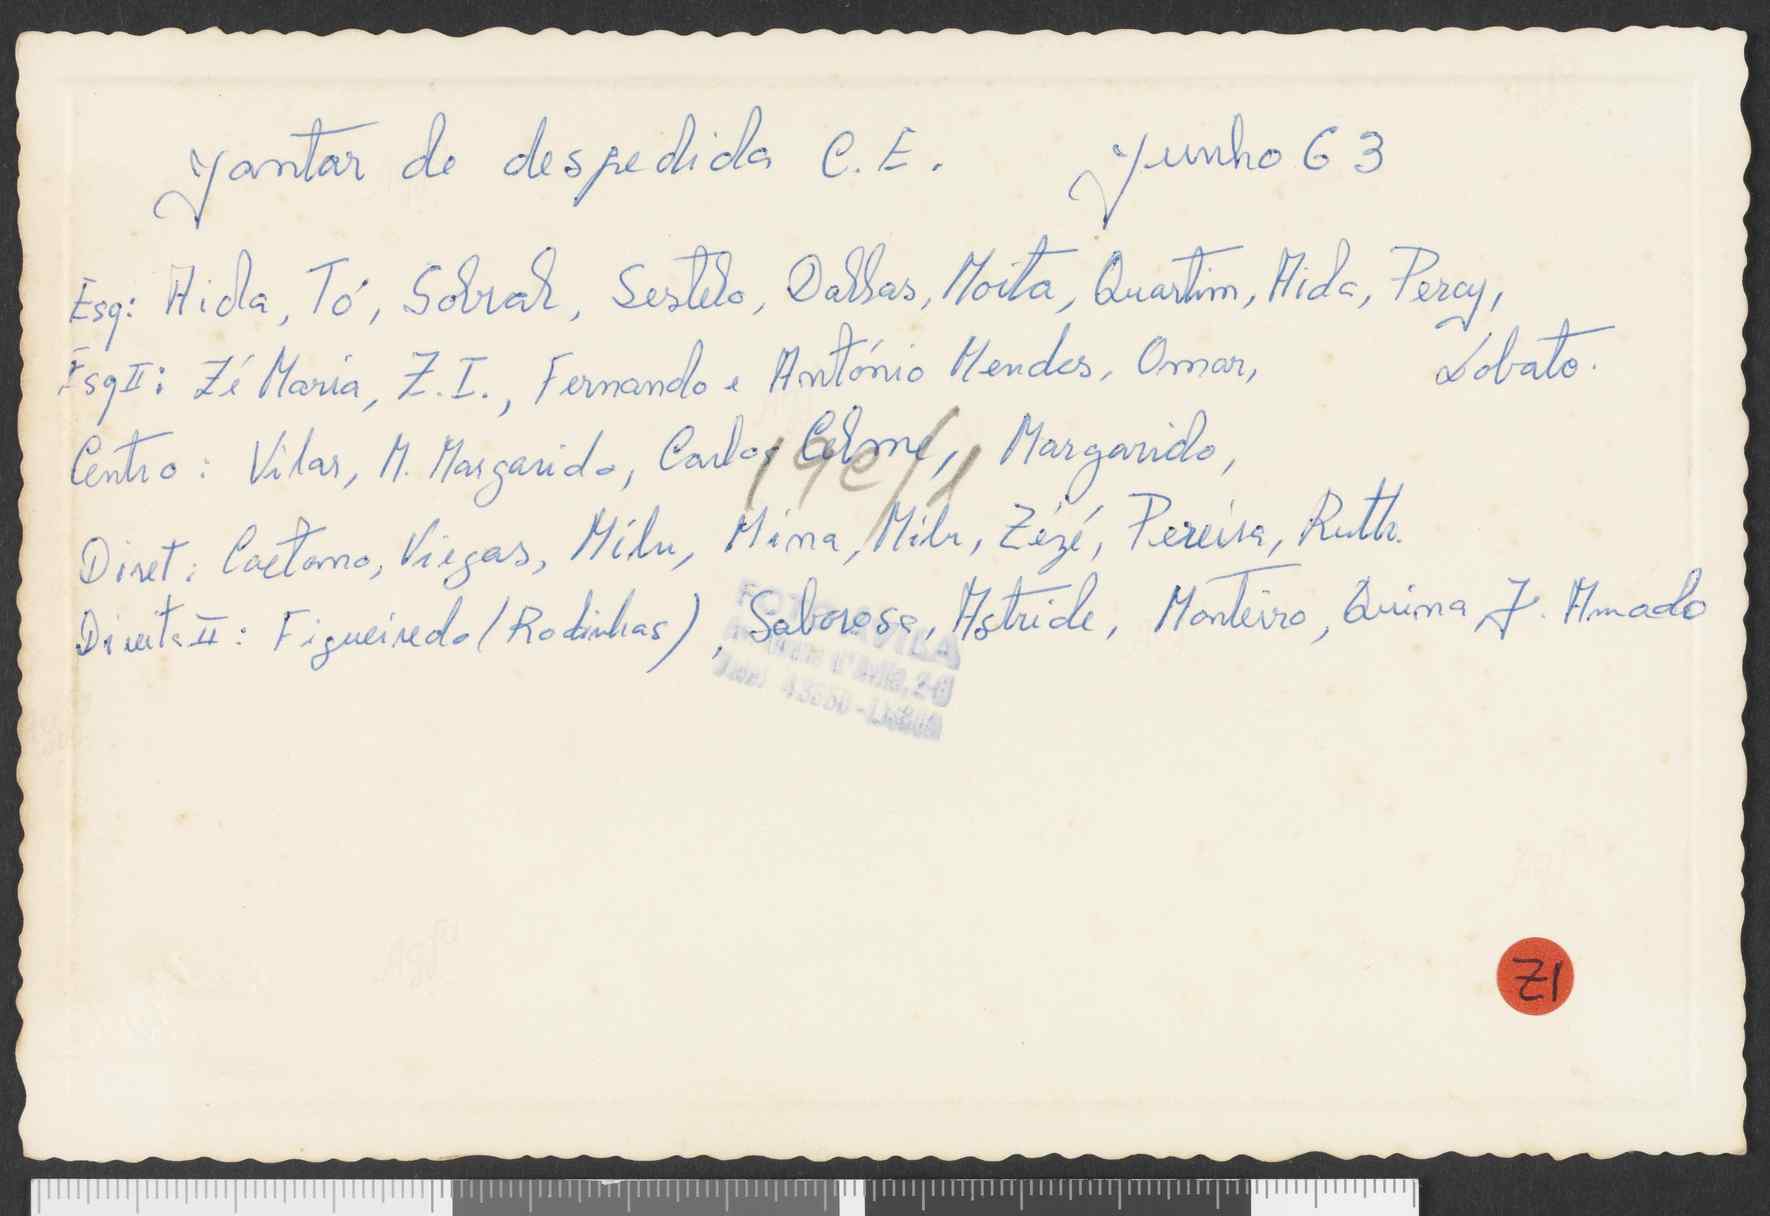 Jantar de despedida C.E. Junho 63
Esq: Aida, Tó, Sobral, Sestelo, Dallas, Moita, Quartim, Aida, Percy,
Lobato.
Esq II: Zé Maria, Z.I., Fernando e António Mendes, Omar,
Centro: Vilar, M. Margarido, Carlos, Margarido,
Diret: Caetano, Viegas, Milu, Mina, Milu, Zézé, Pereira, Ruth.
Direita II: Figueiredo (Rodinhas), Saborosa, Astride, Monteiro, Quima J. Amado
LISBOA
Z1